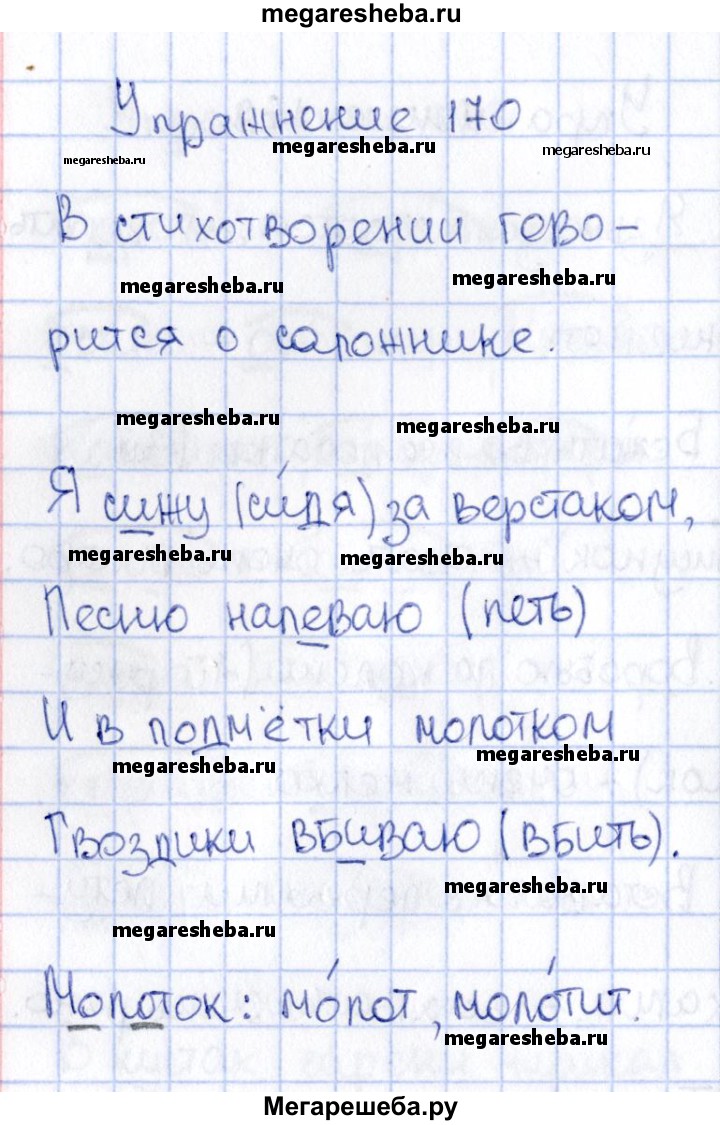 megaresheba.ru
Упражнение 170
megaresheba.ru megaresheba.ru megaresheba.ru
В стихотворении гово-
megaresheba.ru megaresheba.ru
рится о сапожнике.
megaresheba.ru megaresheba.ru
Я сижу (си́дя) за верстаком,
megaresheba.ru megaresheba.ru
Песню напеваю (петь)
И в подмётки молотком
megaresheba.ru megaresheba.ru
Гвоздики вбиваю (вбить).
megaresheba.ru
megaresheba.ru
Молоток: мо́лот, моло́тит.
megaresheba.ru
Мегарешеба.ру